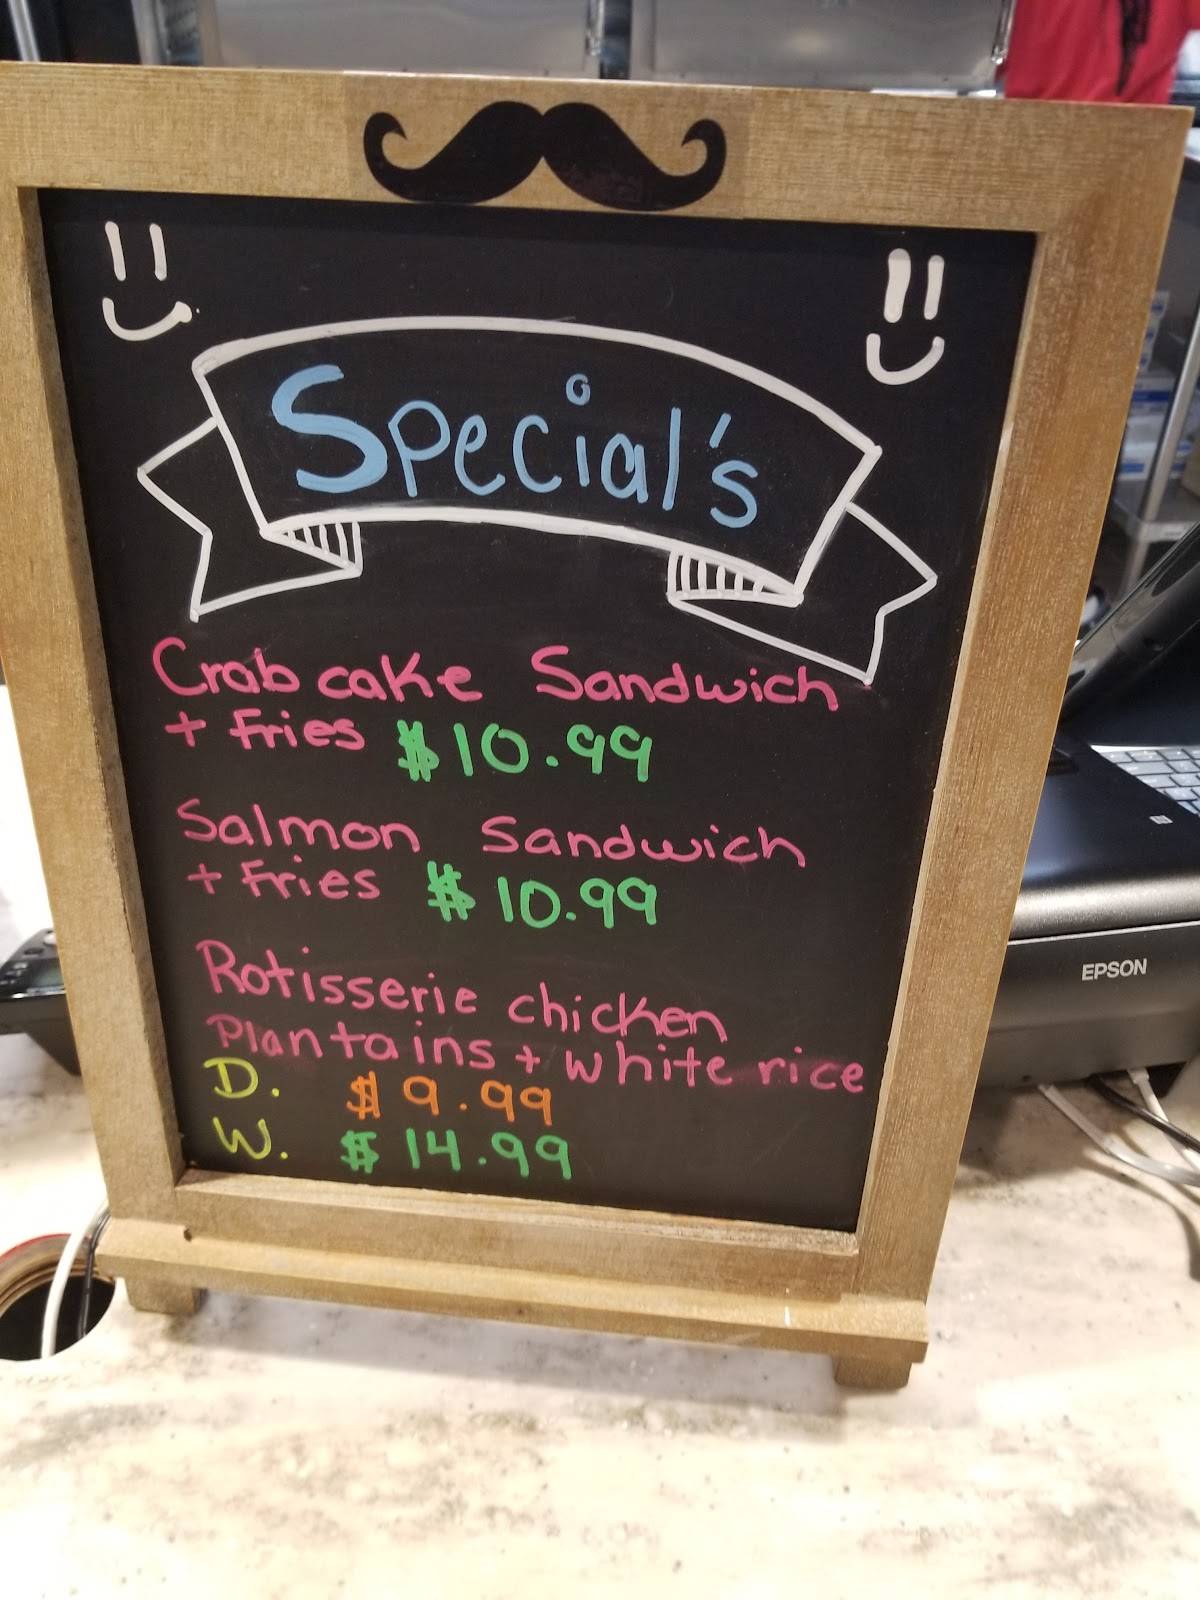 Special's
Crab cake Sandwich
+ Fries $10.99
Salmon Sandwich
+ Fries $10.99
Rotisserie chicken
Plantains + white rice
D. $9.99
W. $14.99
EPSON